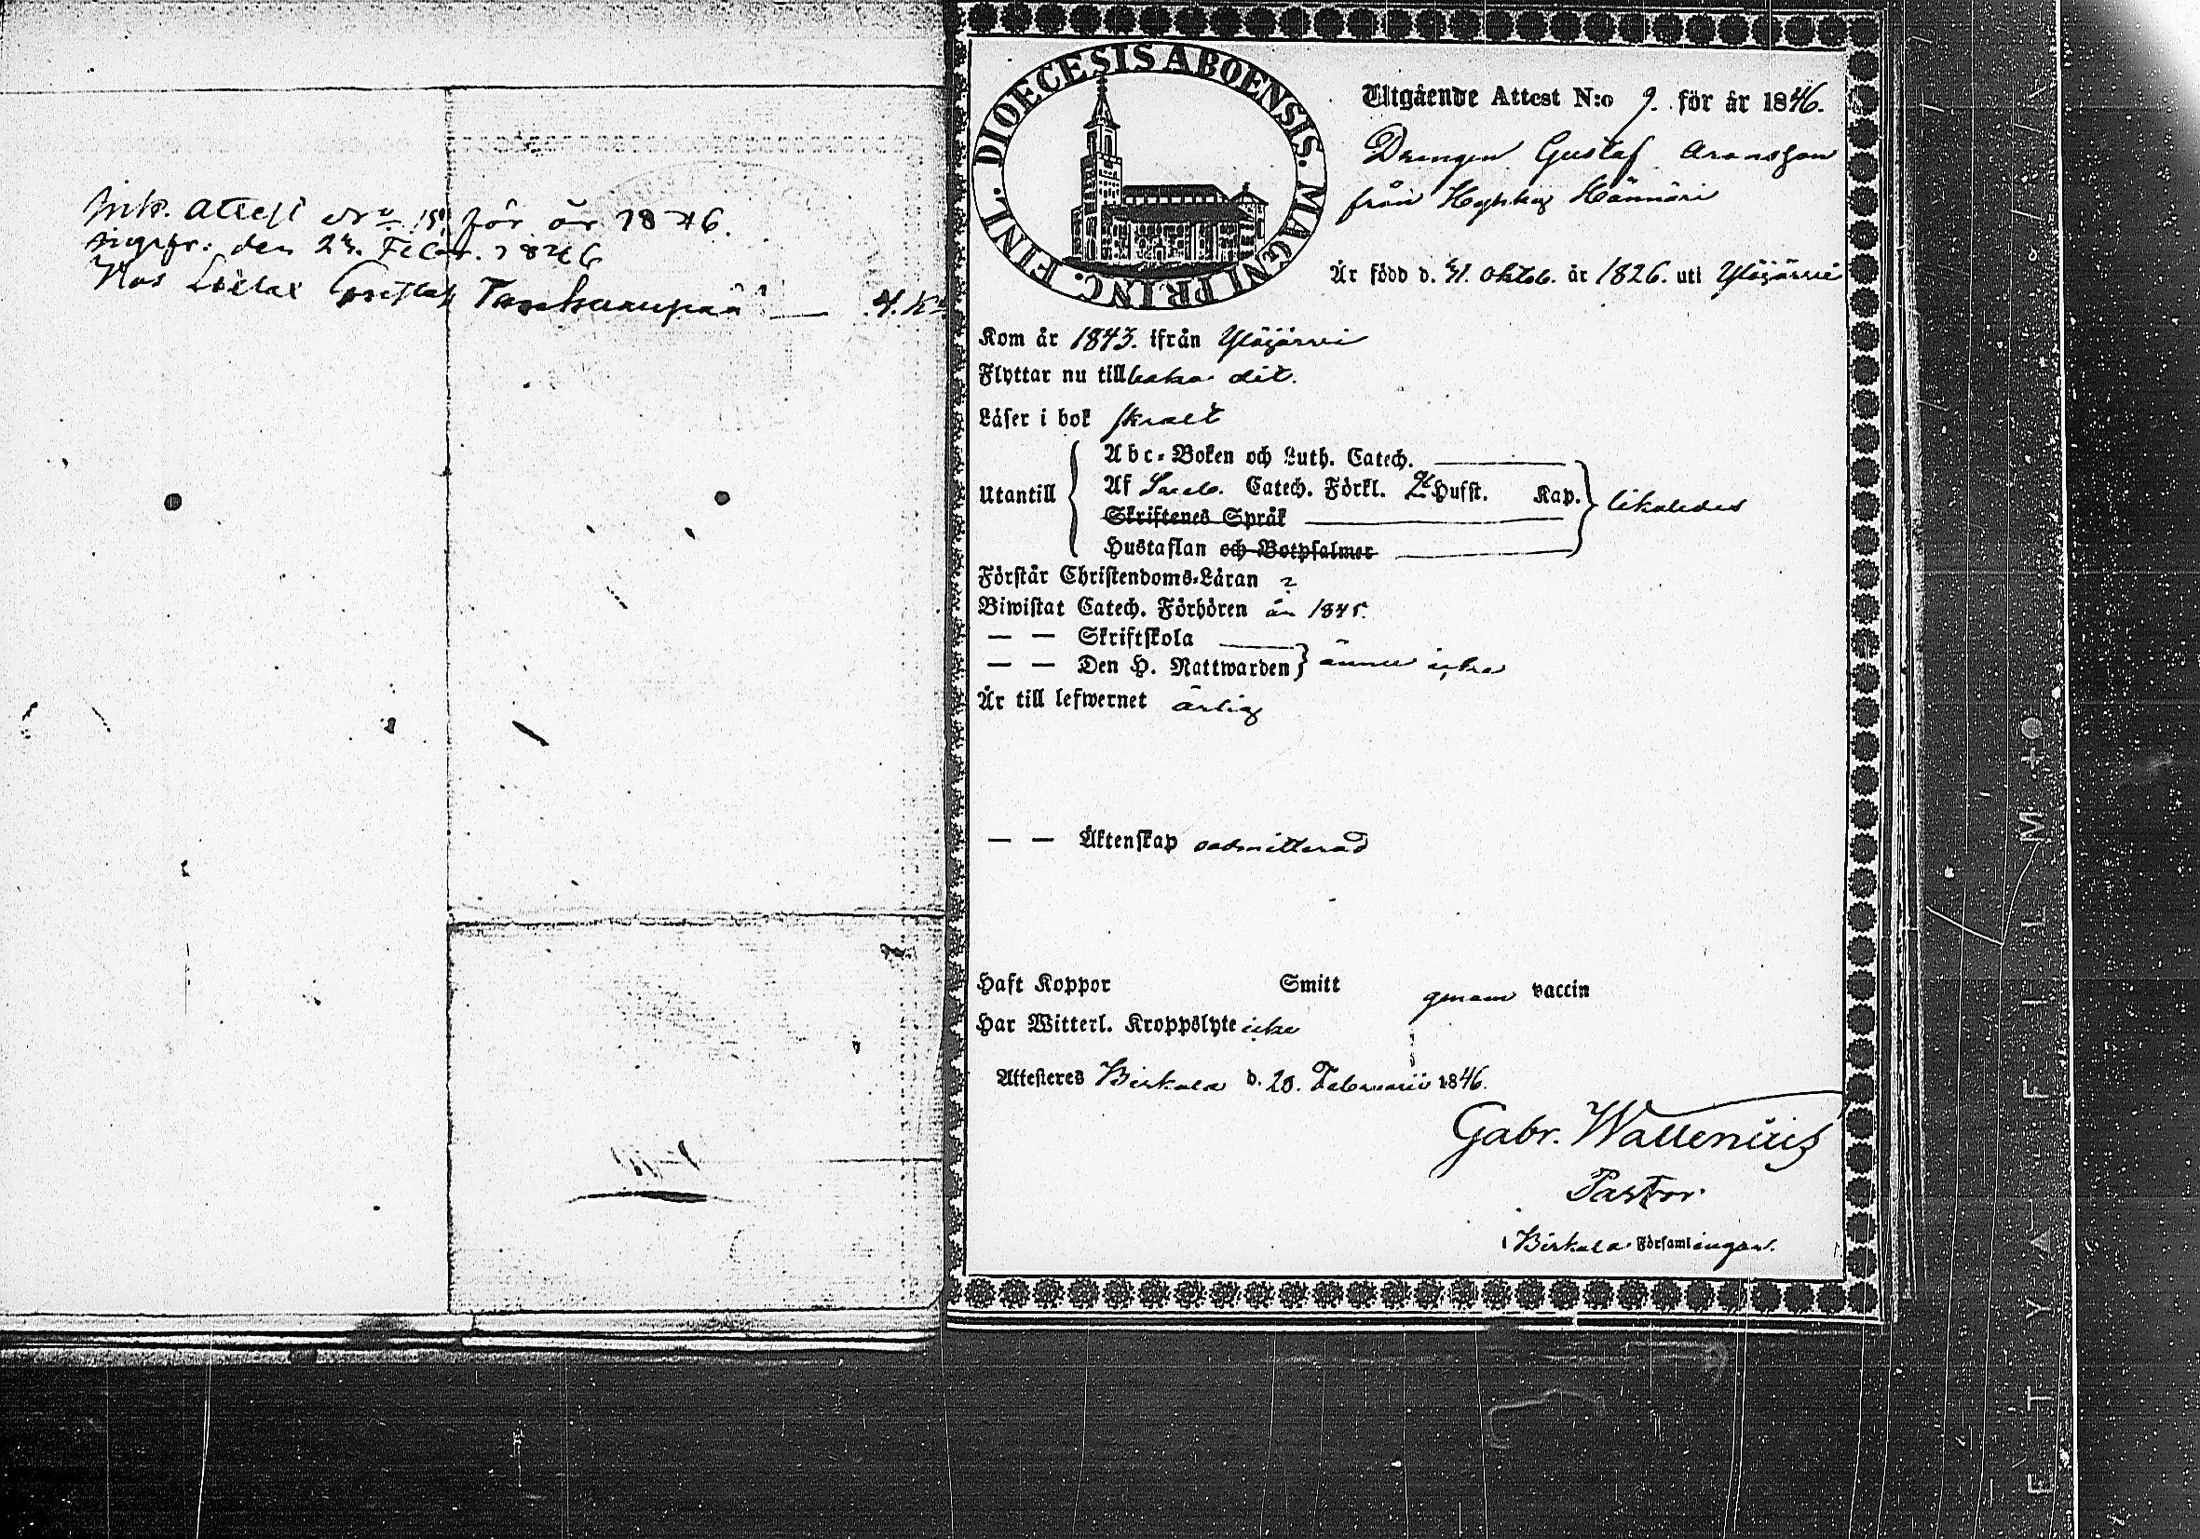 Ink. Attest No 15 för år 1846.
ingifv. den 23. Febr. 1846
Hos Gustaf
DIOECESIS ABOENSIS. MAGNI PRINC. FINL.
Utgående Attest N:o 9. för år 1846.
Drengen Gustaf Aronsson
från Hyhky Hännäri
Är född d. 31. Oktob. år 1826. uti Ylöjärvi
Kom år 1843. ifrån Ylöjärvi
Flyttar nu tillbaka dit.
Läser i bok skralt
Abc-Boken och Luth. Catech.
Utantill
Af Sveb. Catech. Förkl. 2 Hufst. Kap.
likaledes
Skriftenes Språk
Hustaflan och Botpsalmer
Förstår Christendoms-Läran ?
Biwistat Catech. Förhören år 1845.
— — Skriftskola
— — Den H. Nattwarden ännu icke
Är till lefwernet ärlig
— — Äktenskap oadmitterad
Haft Koppor Smitt genom vaccin
Har Witterl. Kroppslyte icke
Attesteres Birkala d. 20. Februarii 1846.
Gabr. Wallenius
Pastor
i Birkala Församlingar.
ETYA-FILM +